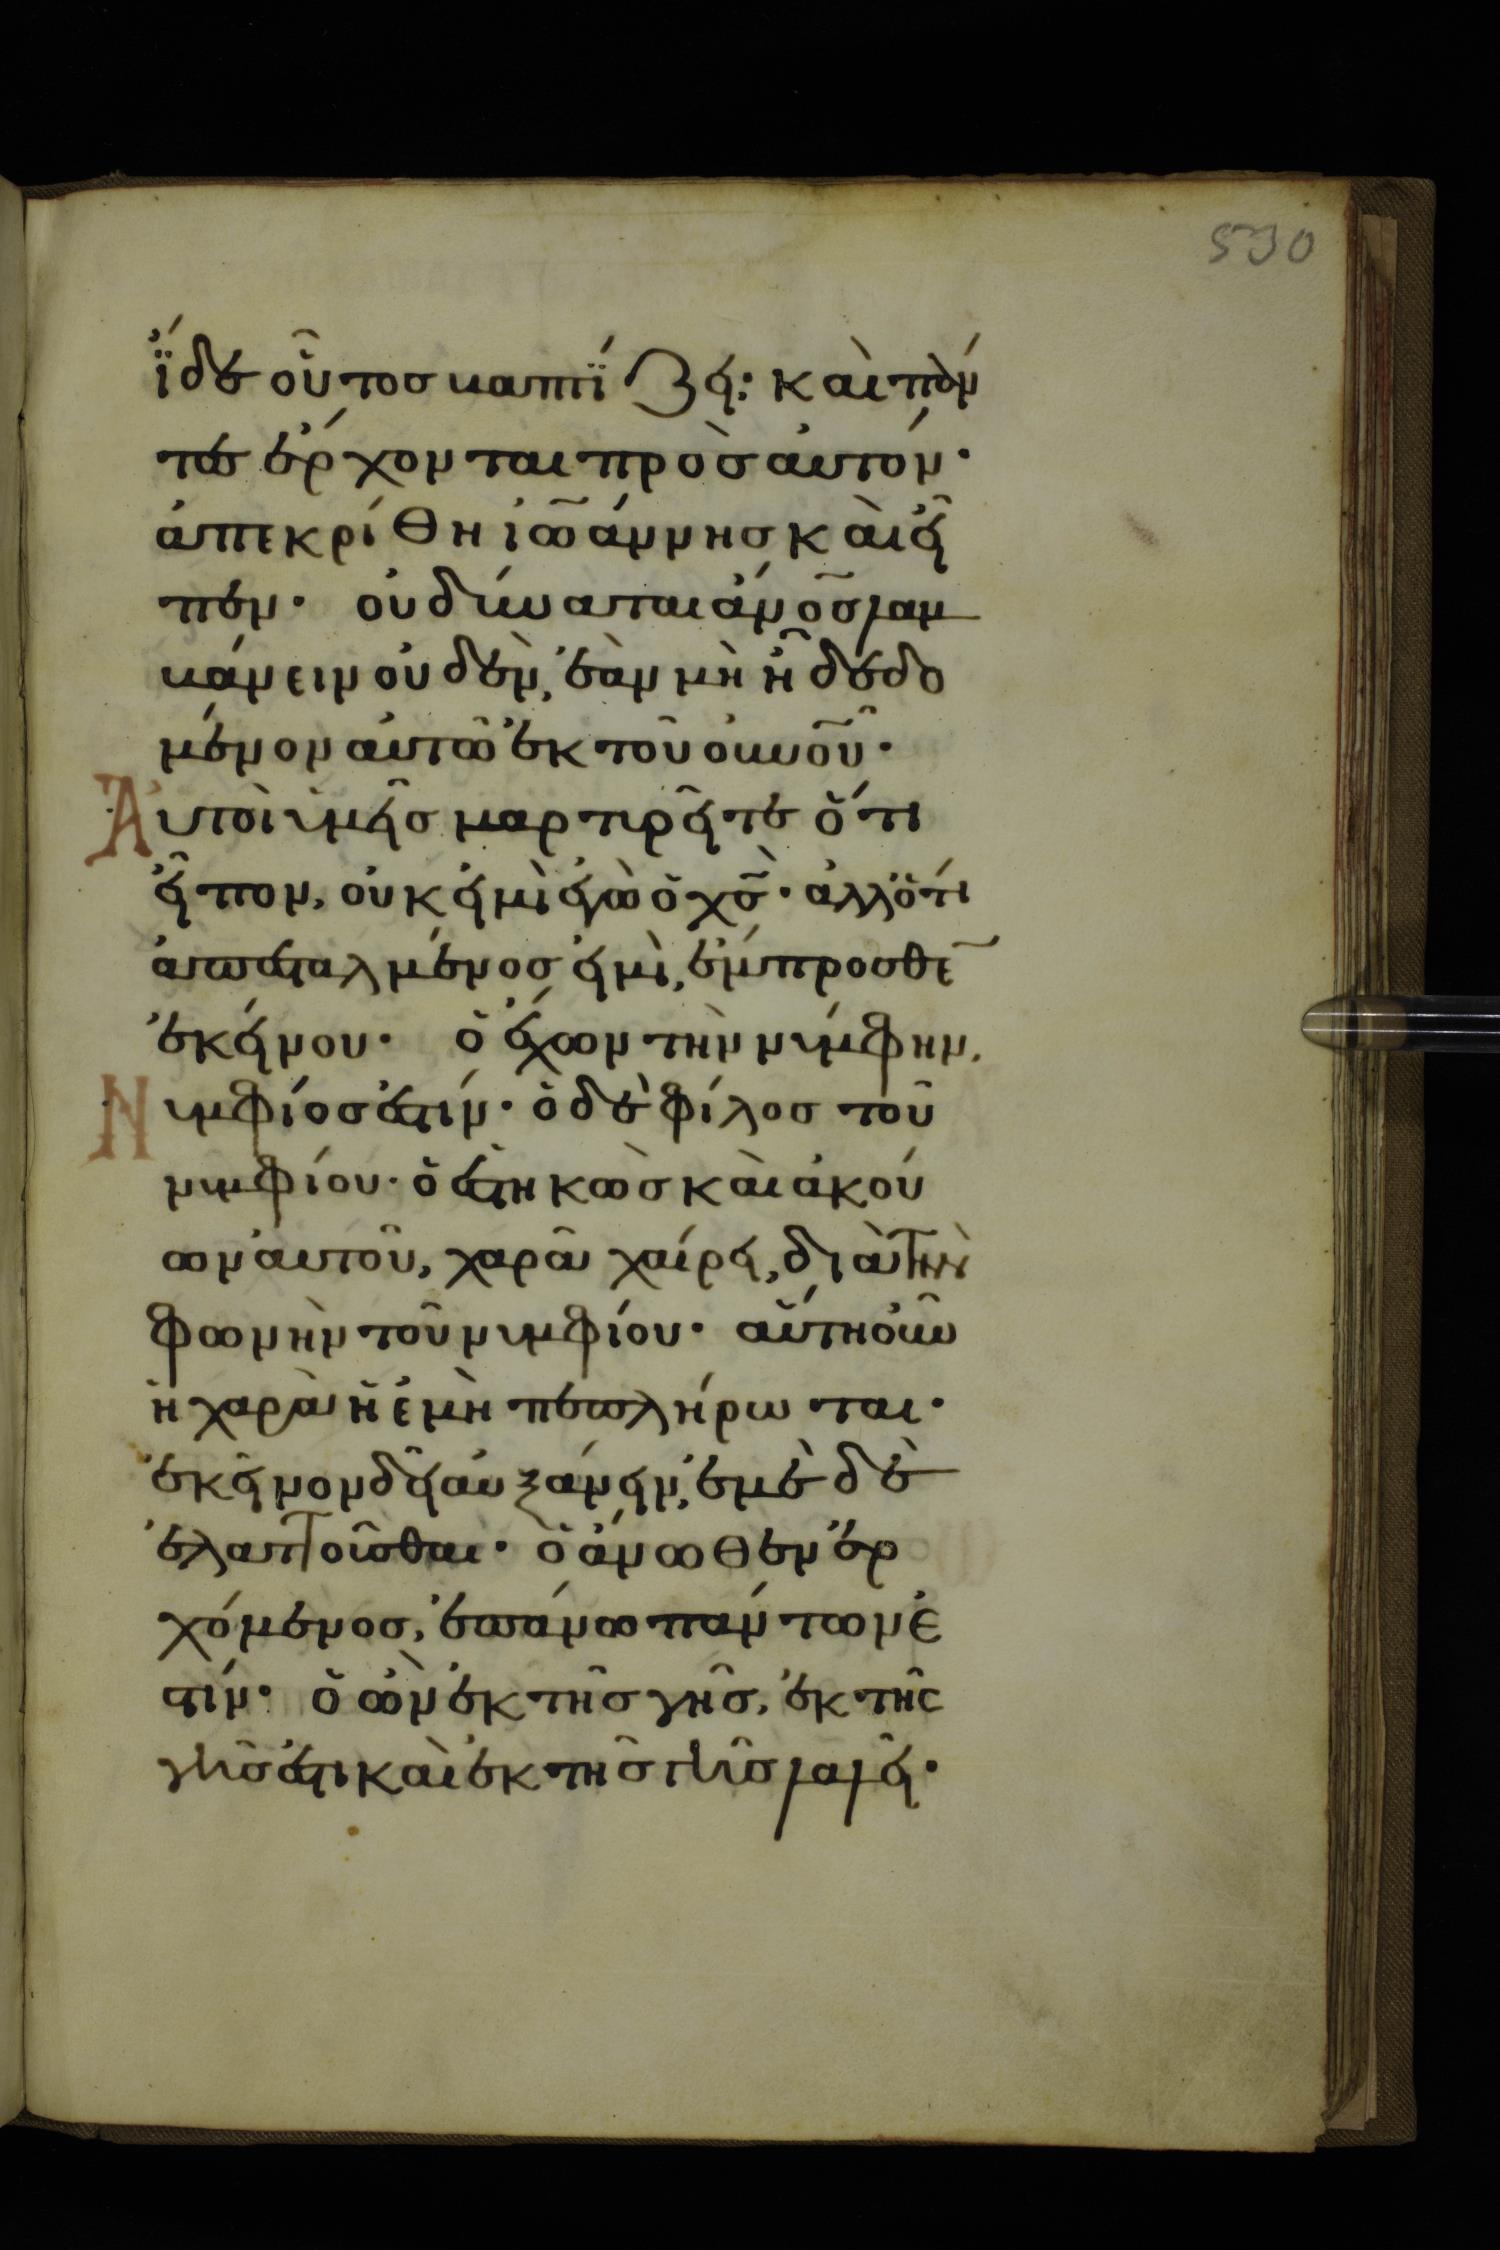 530
ἴδε οὗτος βαπτίζει: καὶ πάν
τες ἔρχονται πρὸς αὐτόν·
ἀπεκρίθη ἰω̃άννης καὶ εἶ
πεν· οὐ δύναται ἄν̅ο̅σ̅ λαμ
βάνειν οὐδὲν, ἐὰν μὴ ἦ δεδο
μένον αὐτῶ ἐκ τοῦ οὐνοῦ·
Αὐτοὶ ὑμεῖς μαρτυρεῖτε ὅτι
εἶπον, οὐκ εἰμὶ ἐγὼ ὁ χσ̅· ἀλλ' ὅτι
ἀπεσταλμένος εἰμὶ, ἔμπροσθε̅
ἐκείνου· ὁ ἔχων τὴν νύμφην,
Νυμφίος ἐστίν· ὁ δὲ φίλος τοῦ
νυμφίου· ὁ ἑστηκὼς καὶ ἀκού
ων αὐτοῦ, χαρᾶ χαίρει, διὰ τὴν
φωνὴν τοῦ νυμφίου· αὕτη οὖν
ἡ χαρὰ ἡ ἐμὴ πεπλήρωται·
ἐκεῖνον δεῖ αὐξάνειν, ἐμὲ δὲ
ἐλαττοῦσθαι· ὁ ἄνωθεν ἐρ
χόμενος, ἐπάνω πάντων ἐ
στίν· ὁ ὢν ἐκ τῆς γῆς, ἐκ τῆς
γῆς ἐστι καὶ ἐκ τῆς γῆς λαλεῖ·